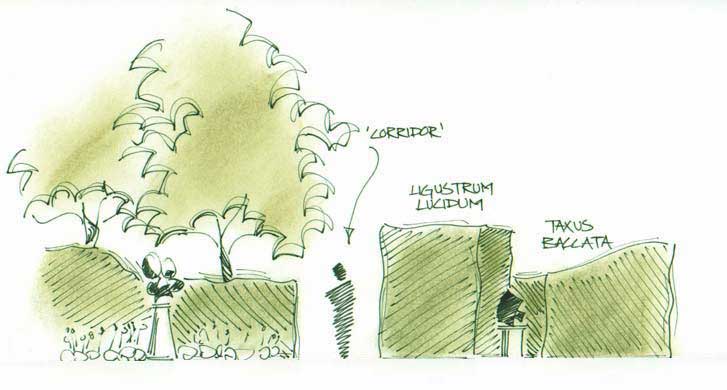 'CORRIDOR'
LIGUSTRUM
LUCIDUM
TAXUS
BACCATA